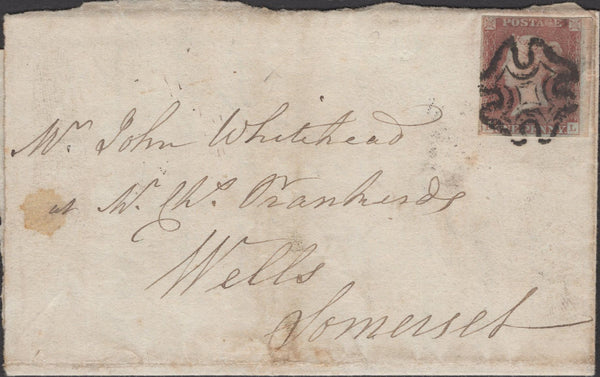 POSTAGE
L
Mr. John Whitehead
at Mr. Chs.
Wells
Somerset